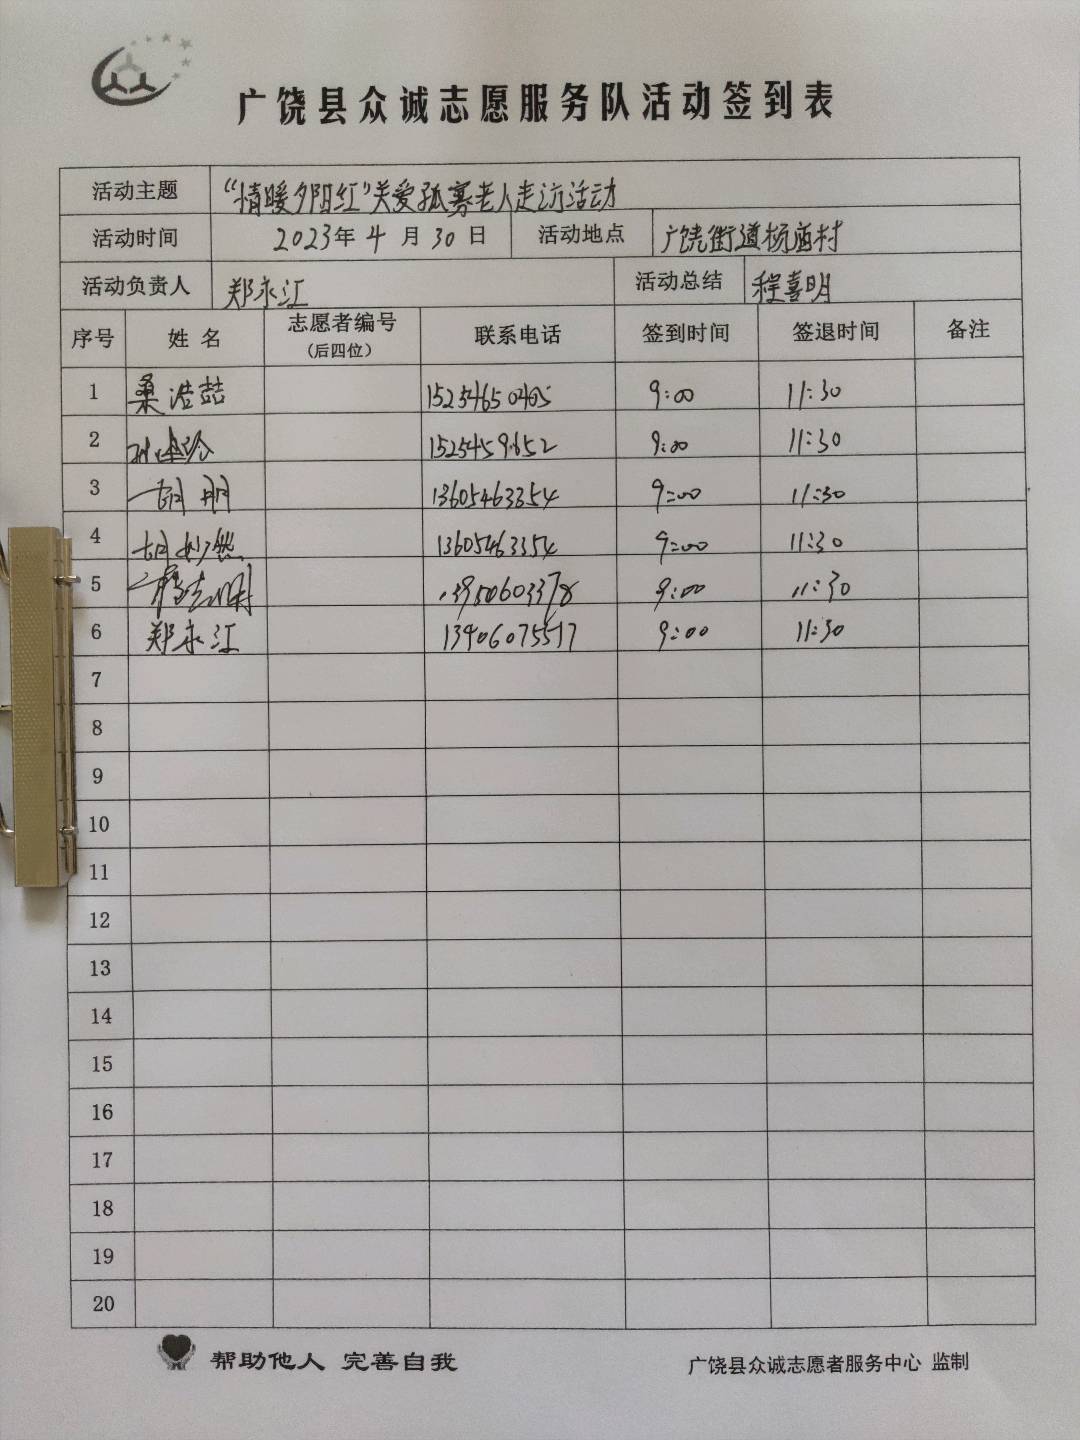 广饶县众诚志愿服务队活动签到表
活动主题 “情暖夕阳红”关爱孤寡老人走访活动
活动时间 2023年 4 月 30 日 活动地点 广饶街道杨庙村
活动负责人 郑永江 活动总结 程喜明
序号 姓 名 志愿者编号 (后四位) 联系电话 签到时间 签退时间 备注
1 桑浩喆 15254650405 9:00 11:30
2 9:00 11:30
3 胡朋 13605463354 9:00 11:30
4 胡妙然 13605463354 9:00 11:30
5 9:00 11:30
6 郑永江 13406075517 9:00 11:30
7
8
9
10
11
12
13
14
15
16
17
18
19
20
帮助他人 完善自我 广饶县众诚志愿者服务中心 监制